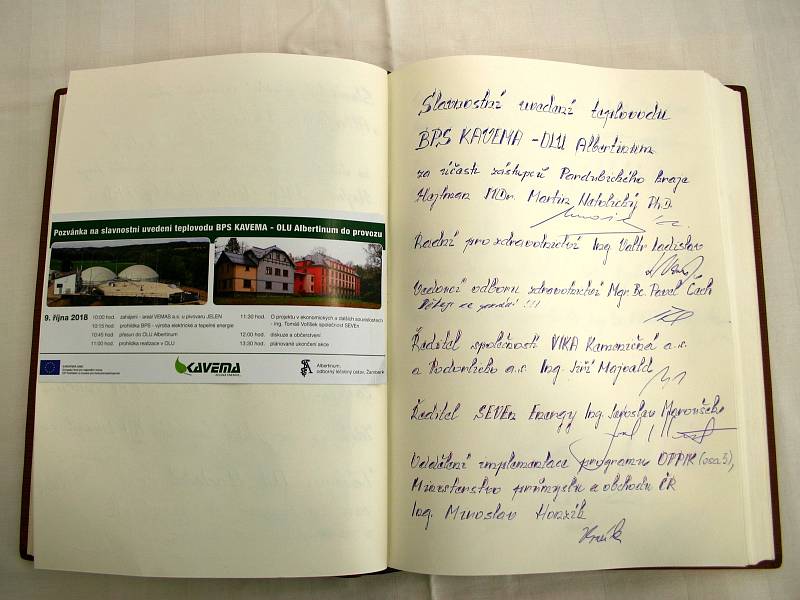 Pozvánka na slavnostní uvedení teplovodu BPS KAVEMA - OLU Albertinum do provozu
9. října 2018
10:00 hod. zahájení - areál VEMAS a.s. u pivovaru JELEN
10:15 hod. prohlídka BPS - výroba elektrické a tepelné energie
10:45 hod. přesun do OLU Albertinum
11:00 hod. prohlídka realizace v OLU
11:30 hod. O projektu v ekonomických a dalších souvislostech
- Ing. Tomáš Voříšek společnost SEVEn
12:00 hod. diskuze a občerstvení
13:30 hod. plánované ukončení akce
EVROPSKÁ UNIE
KAVEMA
Albertinum,
odborný léčebný ústav, Žamberk
Slavnostní uvedení teplovodu
BPS KAVEMA - OLU Albertinum
za účasti zástupců Pardubického kraje
Hejtman MDr. Martin Netolický Ph.D.
Radní pro zdravotnictví Ing Valtr Ladislav
Vedoucí odboru zdravotnictví Mgr. Bc. Pavel Čech
Děkuji za pozvání !!!
Ředitel společnosti VIKA Kameničná a.s.
a Vodotherm a.s. Ing Jiří
Ředitel SEVEn Energy Ing. Jaroslav Maroušek
Oddělení implementace programu OPPIK (osa 3),
Ministerstvo průmyslu a obchodu ČR
Ing. Miroslav Honzík